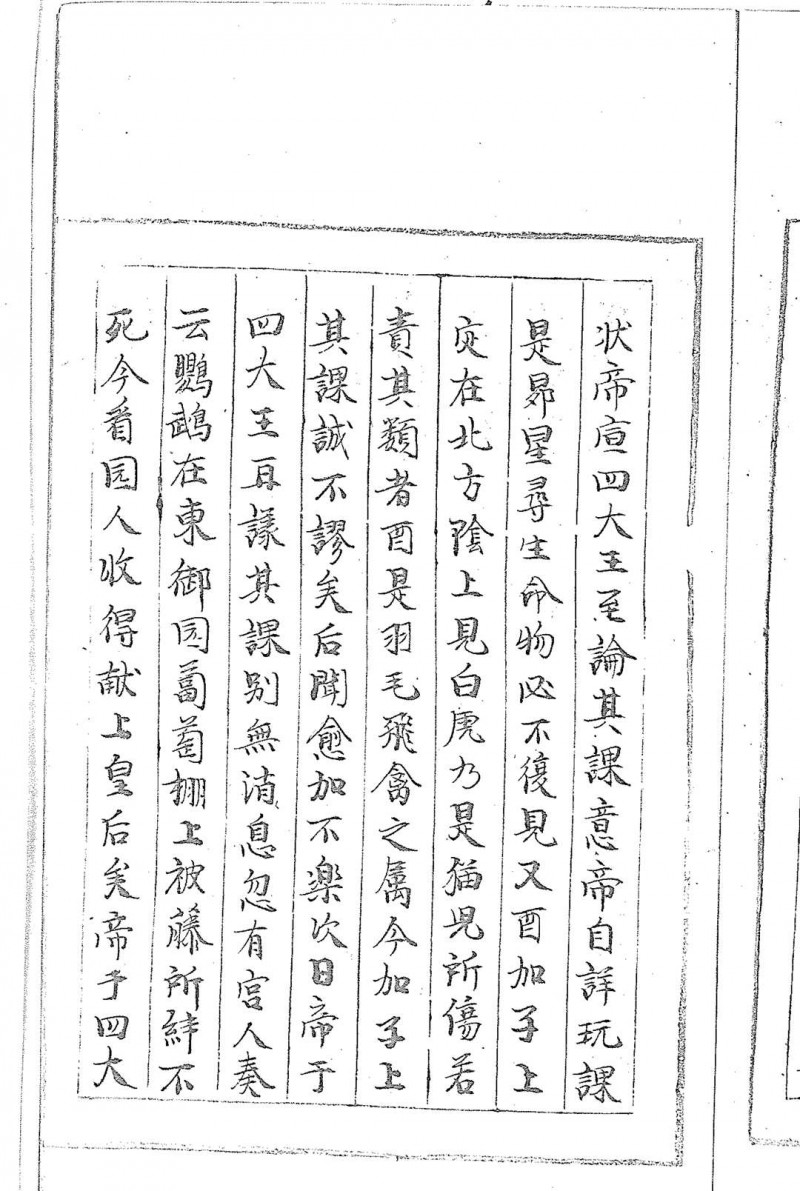 状帝宣四大王至論其課意帝自詳玩課
是昴星尋生命物必不復見又酉加子上
灾在北方陰上見白虎乃是猫児所傷若
責其類者酉是羽毛飛禽之属今加子上
其課誠不謬矣后聞愈加不楽次日帝于
四大王再議其課别無消息忽有宫人奏
云鸚鵡在東御园萄萄棚上被藤所絆不
死今看园人收得献上皇后矣帝于四大